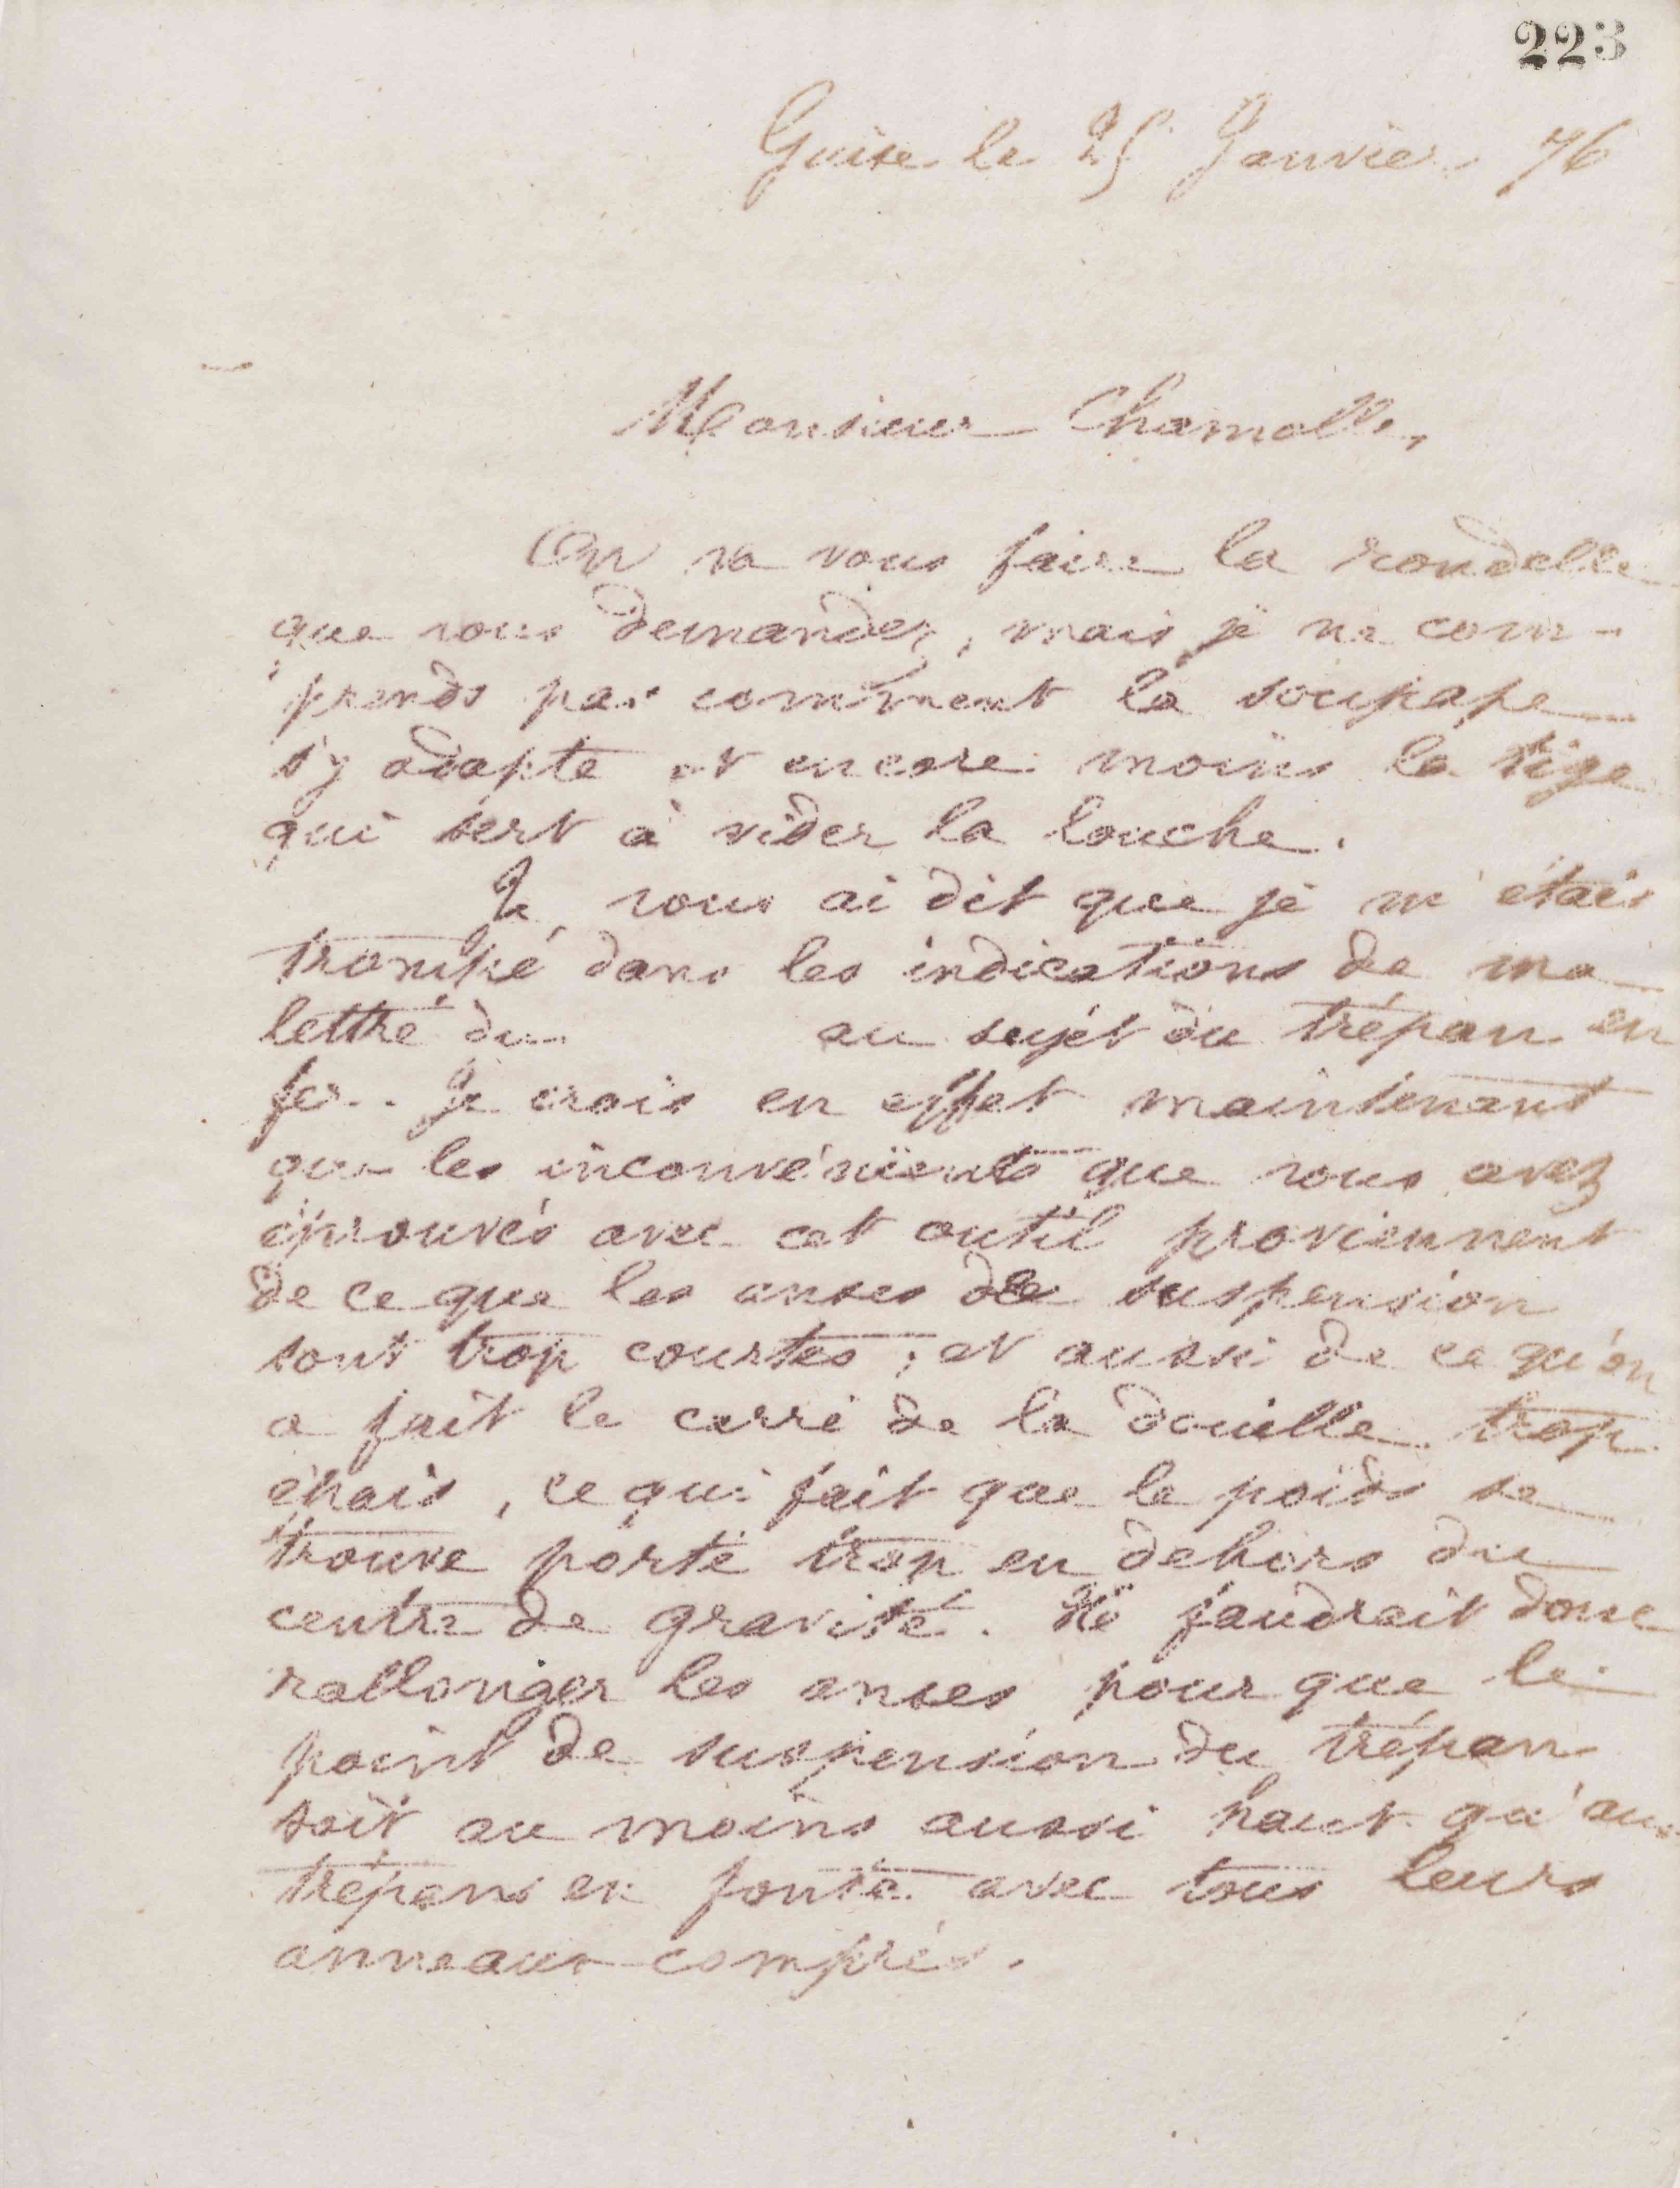 223
Guise le 25 Janvier 76
Monsieur Chamolle,
On va vous faire la rondelle
que vous demandez, mais je ne com-
prends pas comment la soupape
s'y adapte et encore moins la tige
qui sert à vider la louche.
Je vous ai dit que je m'étais
trompé dans les indications de ma
lettre du au sujet du trépan en
fer. Je crois en effet maintenant
que les inconvénients que vous avez
éprouvés avec cet outil proviennent
de ce que les anses de suspension
sont trop courtes ; et aussi de ce qu'on
a fait le carré de la douille trop
épais, ce qui fait que le poids se
trouve porté trop en dehors du
centre de gravité. Il faudrait donc
rallonger les anses pour que le
point de suspension du trépan
soit au moins aussi haut qu'aux
trépans en fonte avec tous leurs
anneaux compris.